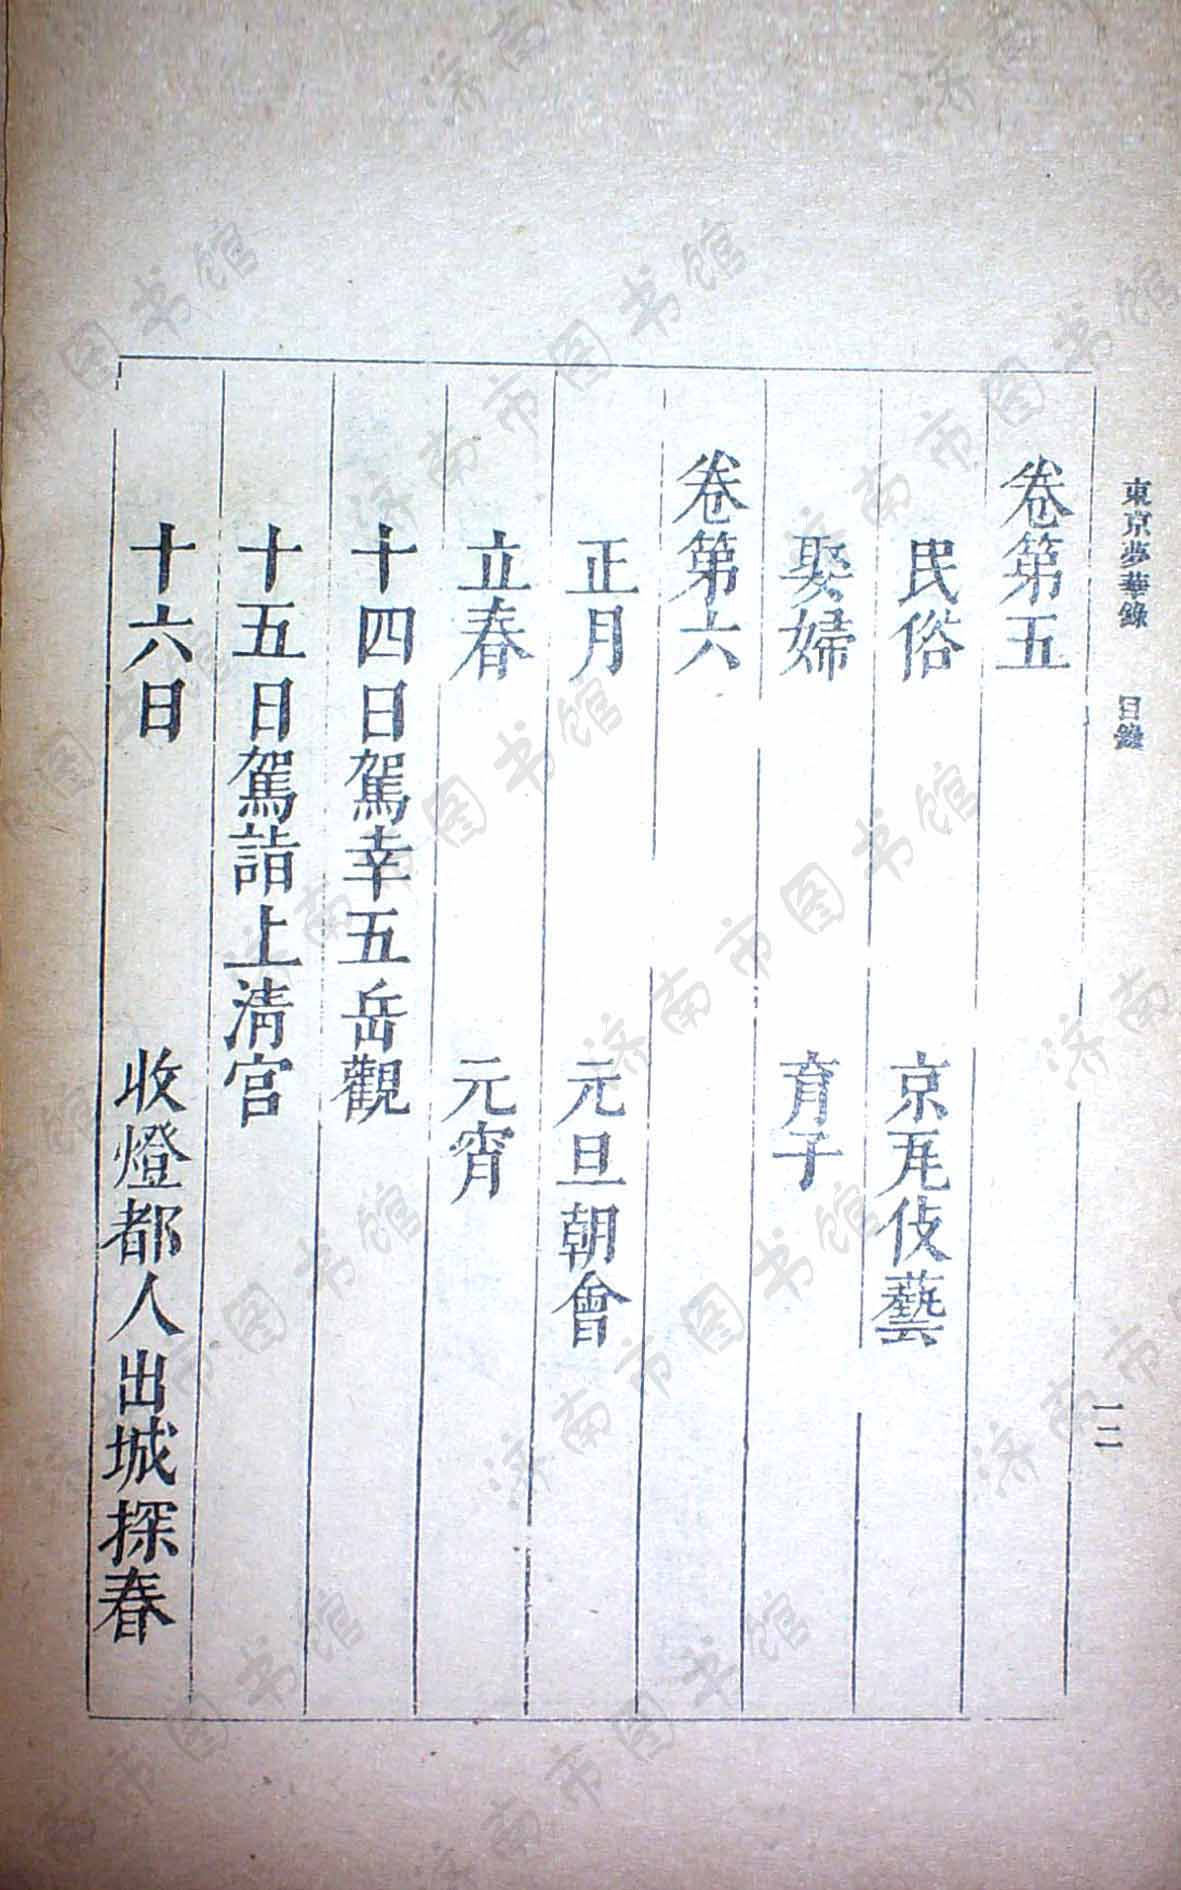 東京夢華錄　目錄　一二
卷第五
民俗　京瓦伎藝
娶婦　育子
卷第六
正月　元旦朝會
立春　元宵
十四日駕幸五岳觀
十五日駕詣上清宮
十六日　收燈都人出城探春
济南市图书馆